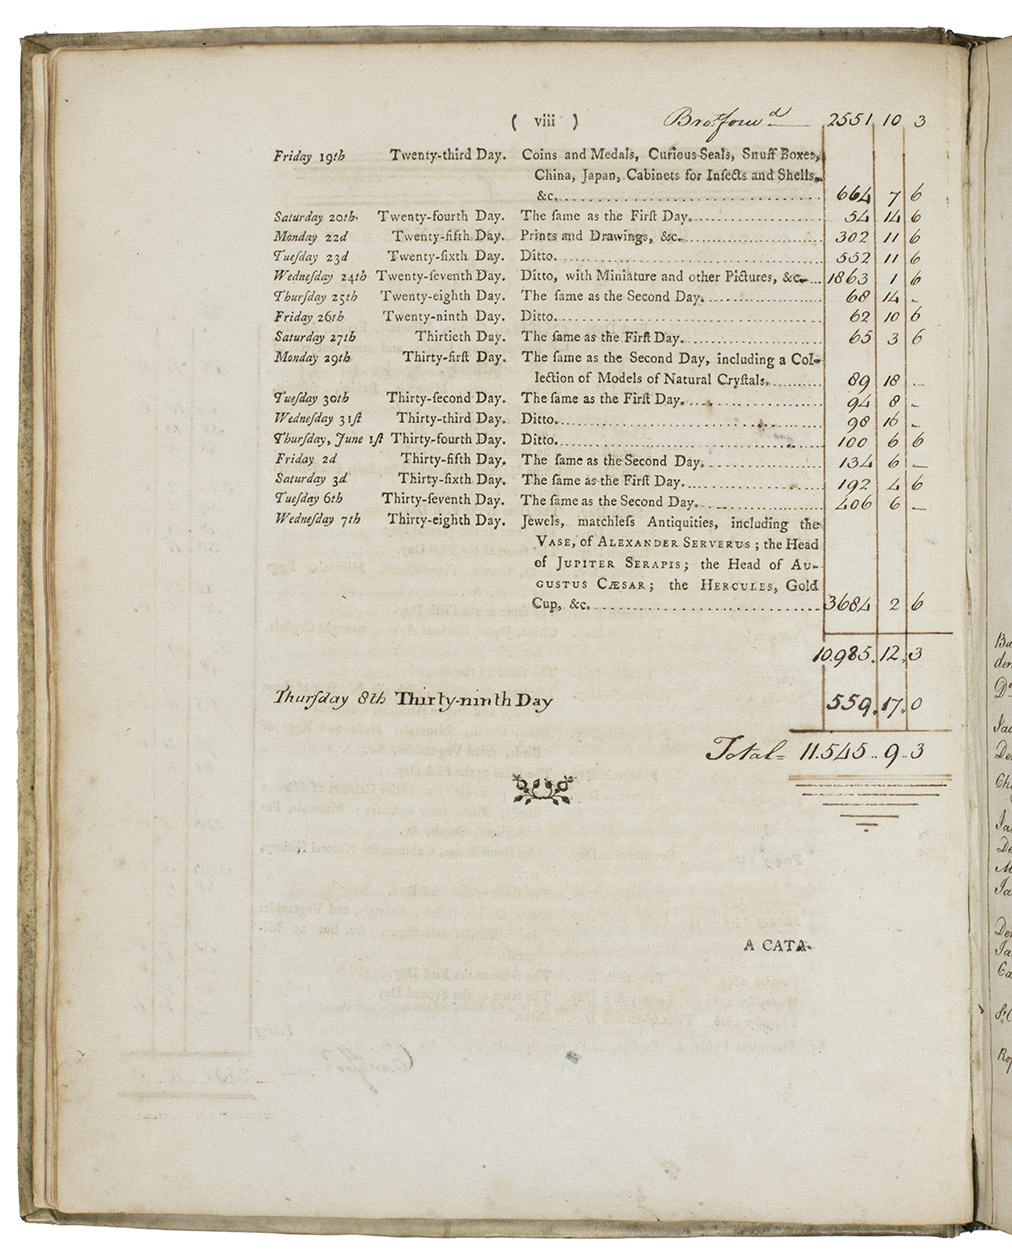 ( viii ) Bro.t forw.d 2551 10 3
Friday 19th Twenty-third Day. Coins and Medals, Curious Seals, Snuff Boxes,
China, Japan, Cabinets for Inſects and Shells,
&c. 664 7 6
Saturday 20th. Twenty-fourth Day. The ſame as the Firſt Day. 54 14 6
Monday 22d Twenty-fifth Day. Prints and Drawings, &c. 302 11 6
Tueſday 23d Twenty-ſixth Day. Ditto. 552 11 6
Wedneſday 24th Twenty-ſeventh Day. Ditto, with Miniature and other Pictures, &c. 1863 1 6
Thurſday 25th Twenty-eighth Day. The ſame as the Second Day. 68 14 -
Friday 26th Twenty-ninth Day. Ditto. 62 10 6
Saturday 27th Thirtieth Day. The ſame as the Firſt Day. 65 3 6
Monday 29th Thirty-firſt Day. The ſame as the Second Day, including a Col-
lection of Models of Natural Cryſtals. 89 18 -
Tueſday 30th Thirty-ſecond Day. The ſame as the Firſt Day. 94 8 -
Wedneſday 31ſt Thirty-third Day. Ditto. 98 16 -
Thurſday, June 1ſt Thirty-fourth Day. Ditto. 100 6 6
Friday 2d Thirty-fifth Day. The ſame as the Second Day. 134 6 -
Saturday 3d Thirty-ſixth Day. The ſame as the Firſt Day. 192 4 6
Tueſday 6th Thirty-ſeventh Day. The ſame as the Second Day. 406 6 -
Wedneſday 7th Thirty-eighth Day. Jewels, matchleſs Antiquities, including the
VASE, of ALEXANDER SERVERUS; the Head
of JUPITER SERAPIS; the Head of AU-
GUSTUS CÆSAR; the HERCULES, Gold
Cup, &c. 3684 2 6
10.985. 12. 3
Thurſday 8th Thirty-ninth Day 559. 17. 0
Total = 11.545 .. 9 .. 3
A CATA-